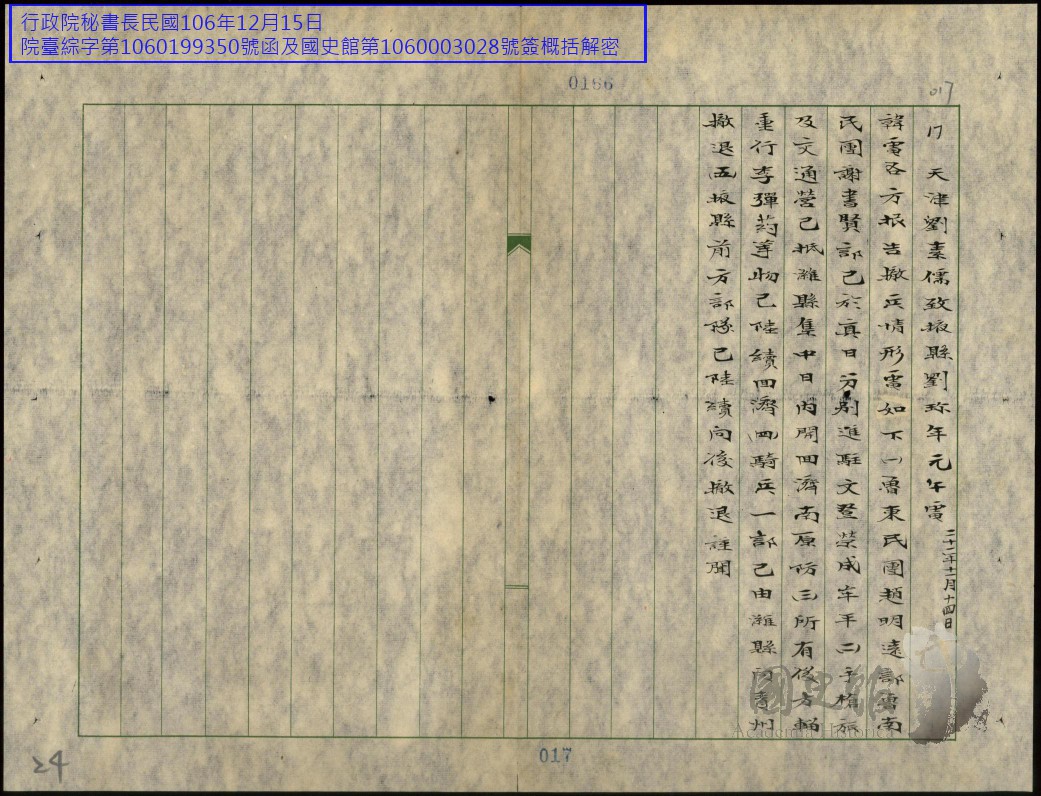 行政院秘書長民國106年12月15日
院臺綜字第1060199350號函及國史館第1060003028號簽概括解密
0186
017
17 天津劉臺儒致掖縣劉珍年元午電 二十一年十一月十四日
韓電各方报告撤兵情形電如下(一)魯東民團趙明遠部魯南
民團謝書賢部已於真日分别進駐文登榮成牟平(二)手槍旅
及交通營已抵濰縣集中日内開回濟南原防(三)所有後方輜
重行李彈药等物已陸續回濟(四)騎兵一部已由濰縣向青州
撤退(五)掖縣前方部隊已陸續向後撤退註開
國史館
Academia Historica
017
24